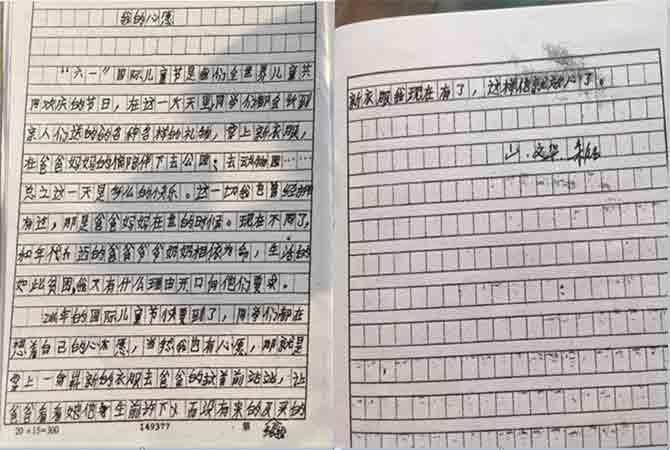 我的心愿
“六一”国际儿童节是我们全世界儿童共
同欢庆的节日，在这一天里同学们都会收到
家人们送的各种各样的礼物，穿上新衣服，
在爸爸妈妈的陪伴下去公园；去动物园……
总之这一天是多么的快乐。这一切我也曾经
有过，那是爸爸妈妈在世的时候。现在不同了，
和年代久远的爷爷奶奶相依为命，生活的
如此贫困，我又有什么理由开口向他们要求。
年的国际儿童节快要到了，同学们都在
想着自己的心愿，当然我也有心愿，那就是
穿上一身崭新的衣服去爸爸的坟墓前站站，让
爸爸看看她生前许下又没有来的及买的
20×15=300
149377
第
新衣服我现在有了，这样他就放心了。